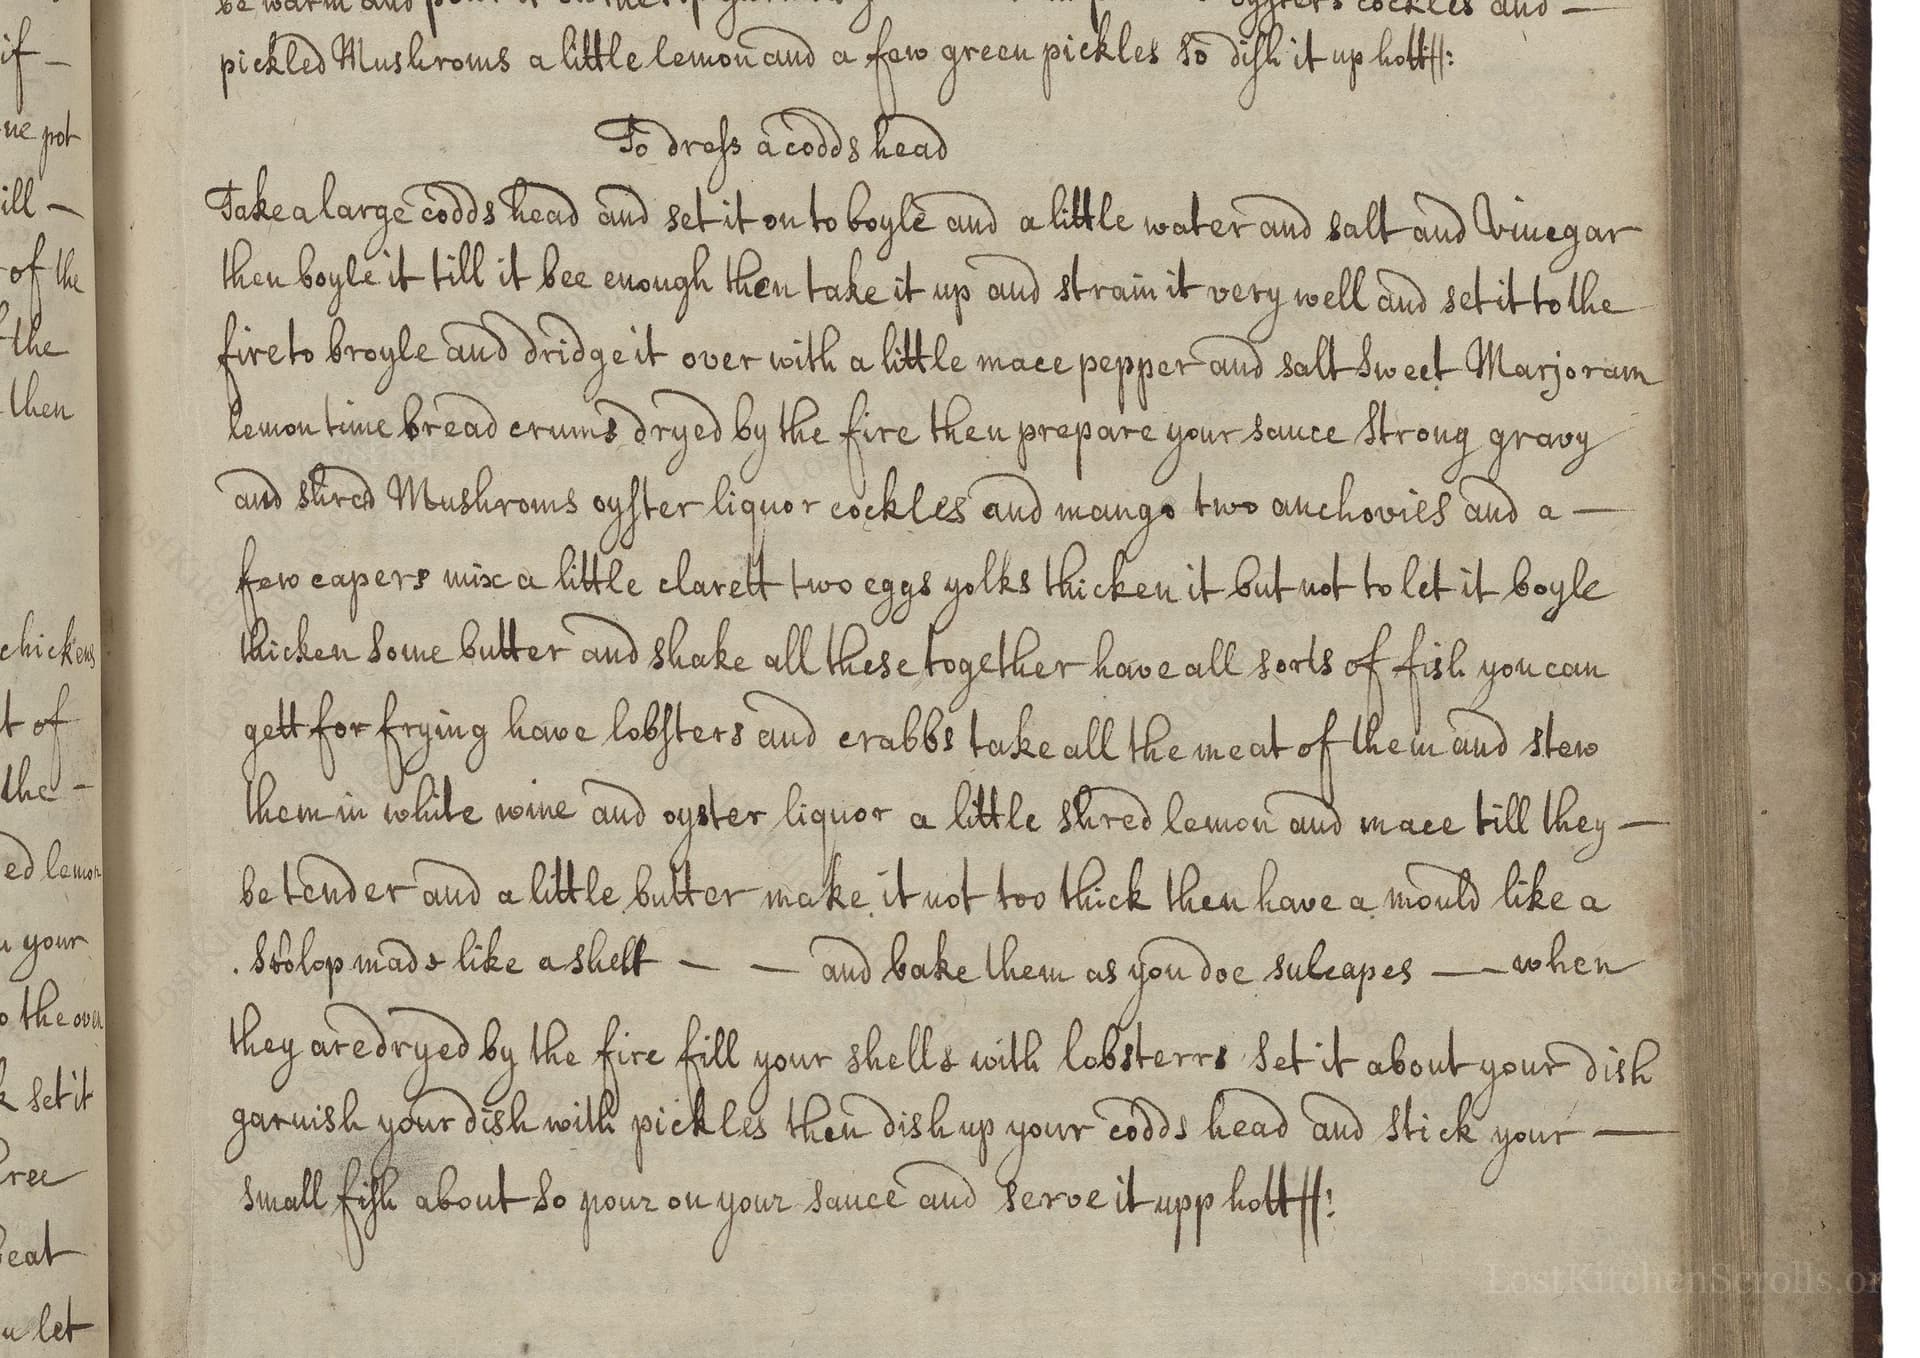 be warm and pour it on the top oysters cockles and —
pickled Mushroms a little lemon and a few green pickles so dish it up hott//:
To dress a codds head
Take a large codds head and set it on to boyle and a little water and salt and Vinegar
then boyle it till it bee enough then take it up and strain it very well and set it to the
fire to broyle and dridge it over with a little mace pepper and salt sweet Marjoram
lemon time bread crums dryed by the fire then prepare your sauce strong gravy
and shred Mushroms oyster liquor cockles and mango two anchovies and a —
few capers mix a little clarett two eggs yolks thicken it but not to let it boyle
thicken some butter and shake all these together have all sorts of fish you can
gett for frying have lobsters and crabbs take all the meat of them and stew
them in white wine and oyster liquor a little shred lemon and mace till they —
be tender and a little butter make it not too thick then have a mould like a
scolop made like a shell — — and bake them as you doe sulcapes — when
they are dryed by the fire fill your shells with lobsterrs set it about your dish
garnish your dish with pickles then dish up your codds head and stick your —
small fish about so pour on your sauce and serve it upp hott//:
if —
ne pot
ill —
of the
the
then
chickens
t of
the —
ed lemon
your
o the oven
set it
beat
u let
LostKitchenScrolls.or